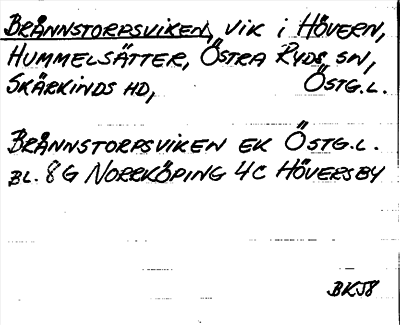 BRÅNNSTORPSVIKEN, VIK I HÖVERN,
HUMMELSÄTTER, ÖSTRA RYDS SN,
SKÄRKINDS HD, ÖSTG.L.
BRÅNNSTORPSVIKEN EK ÖSTG.L.
BL. 8G NORRKÖPING 4C HÖVERSBY
BKJ8